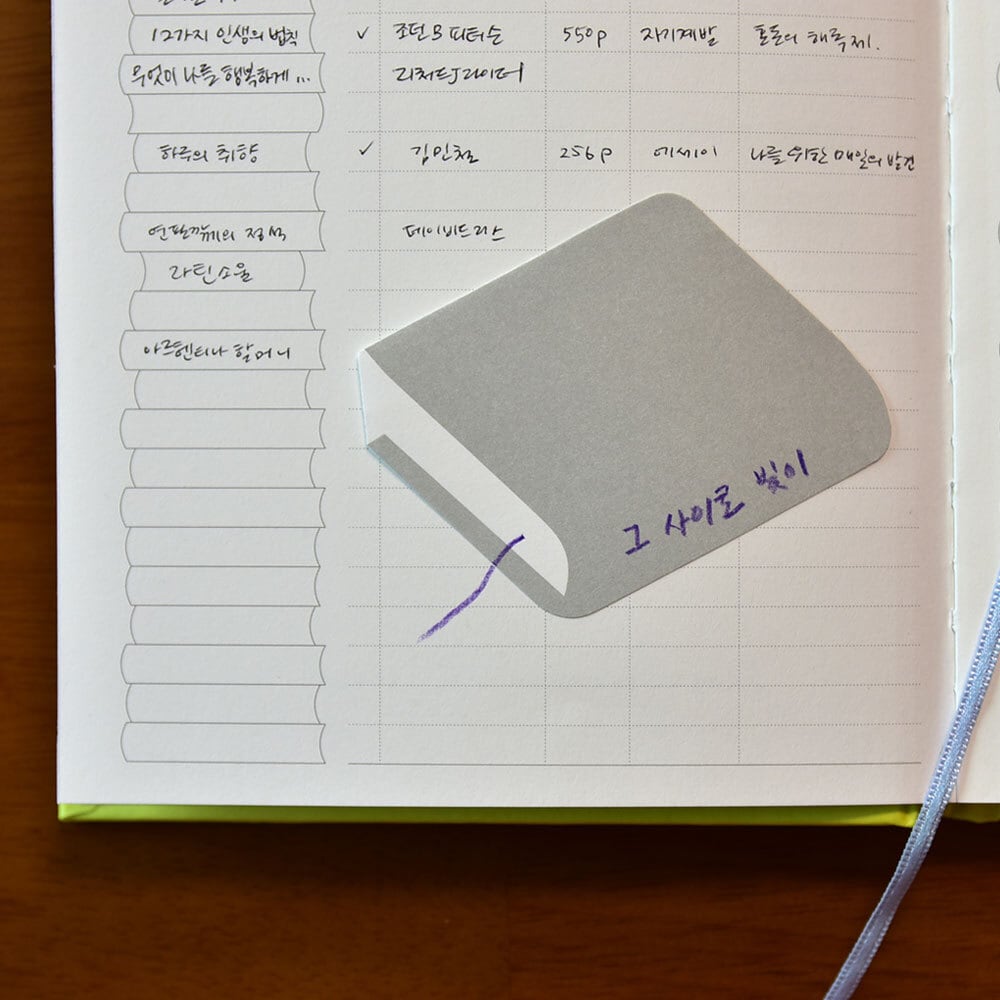 12가지 인생의 법칙 ✓ 조던 B 피터슨 550p 자기계발 혼돈의 해독제.
무엇이 나를 행복하게 ... 리처드J라이더
하루의 취향 ✓ 김민철 256p 에세이 나를 위한 매일의 발견
연필깎기의 정석 데이비드리스
라틴소울
아르헨티나 할머니
그 사이로 빛이